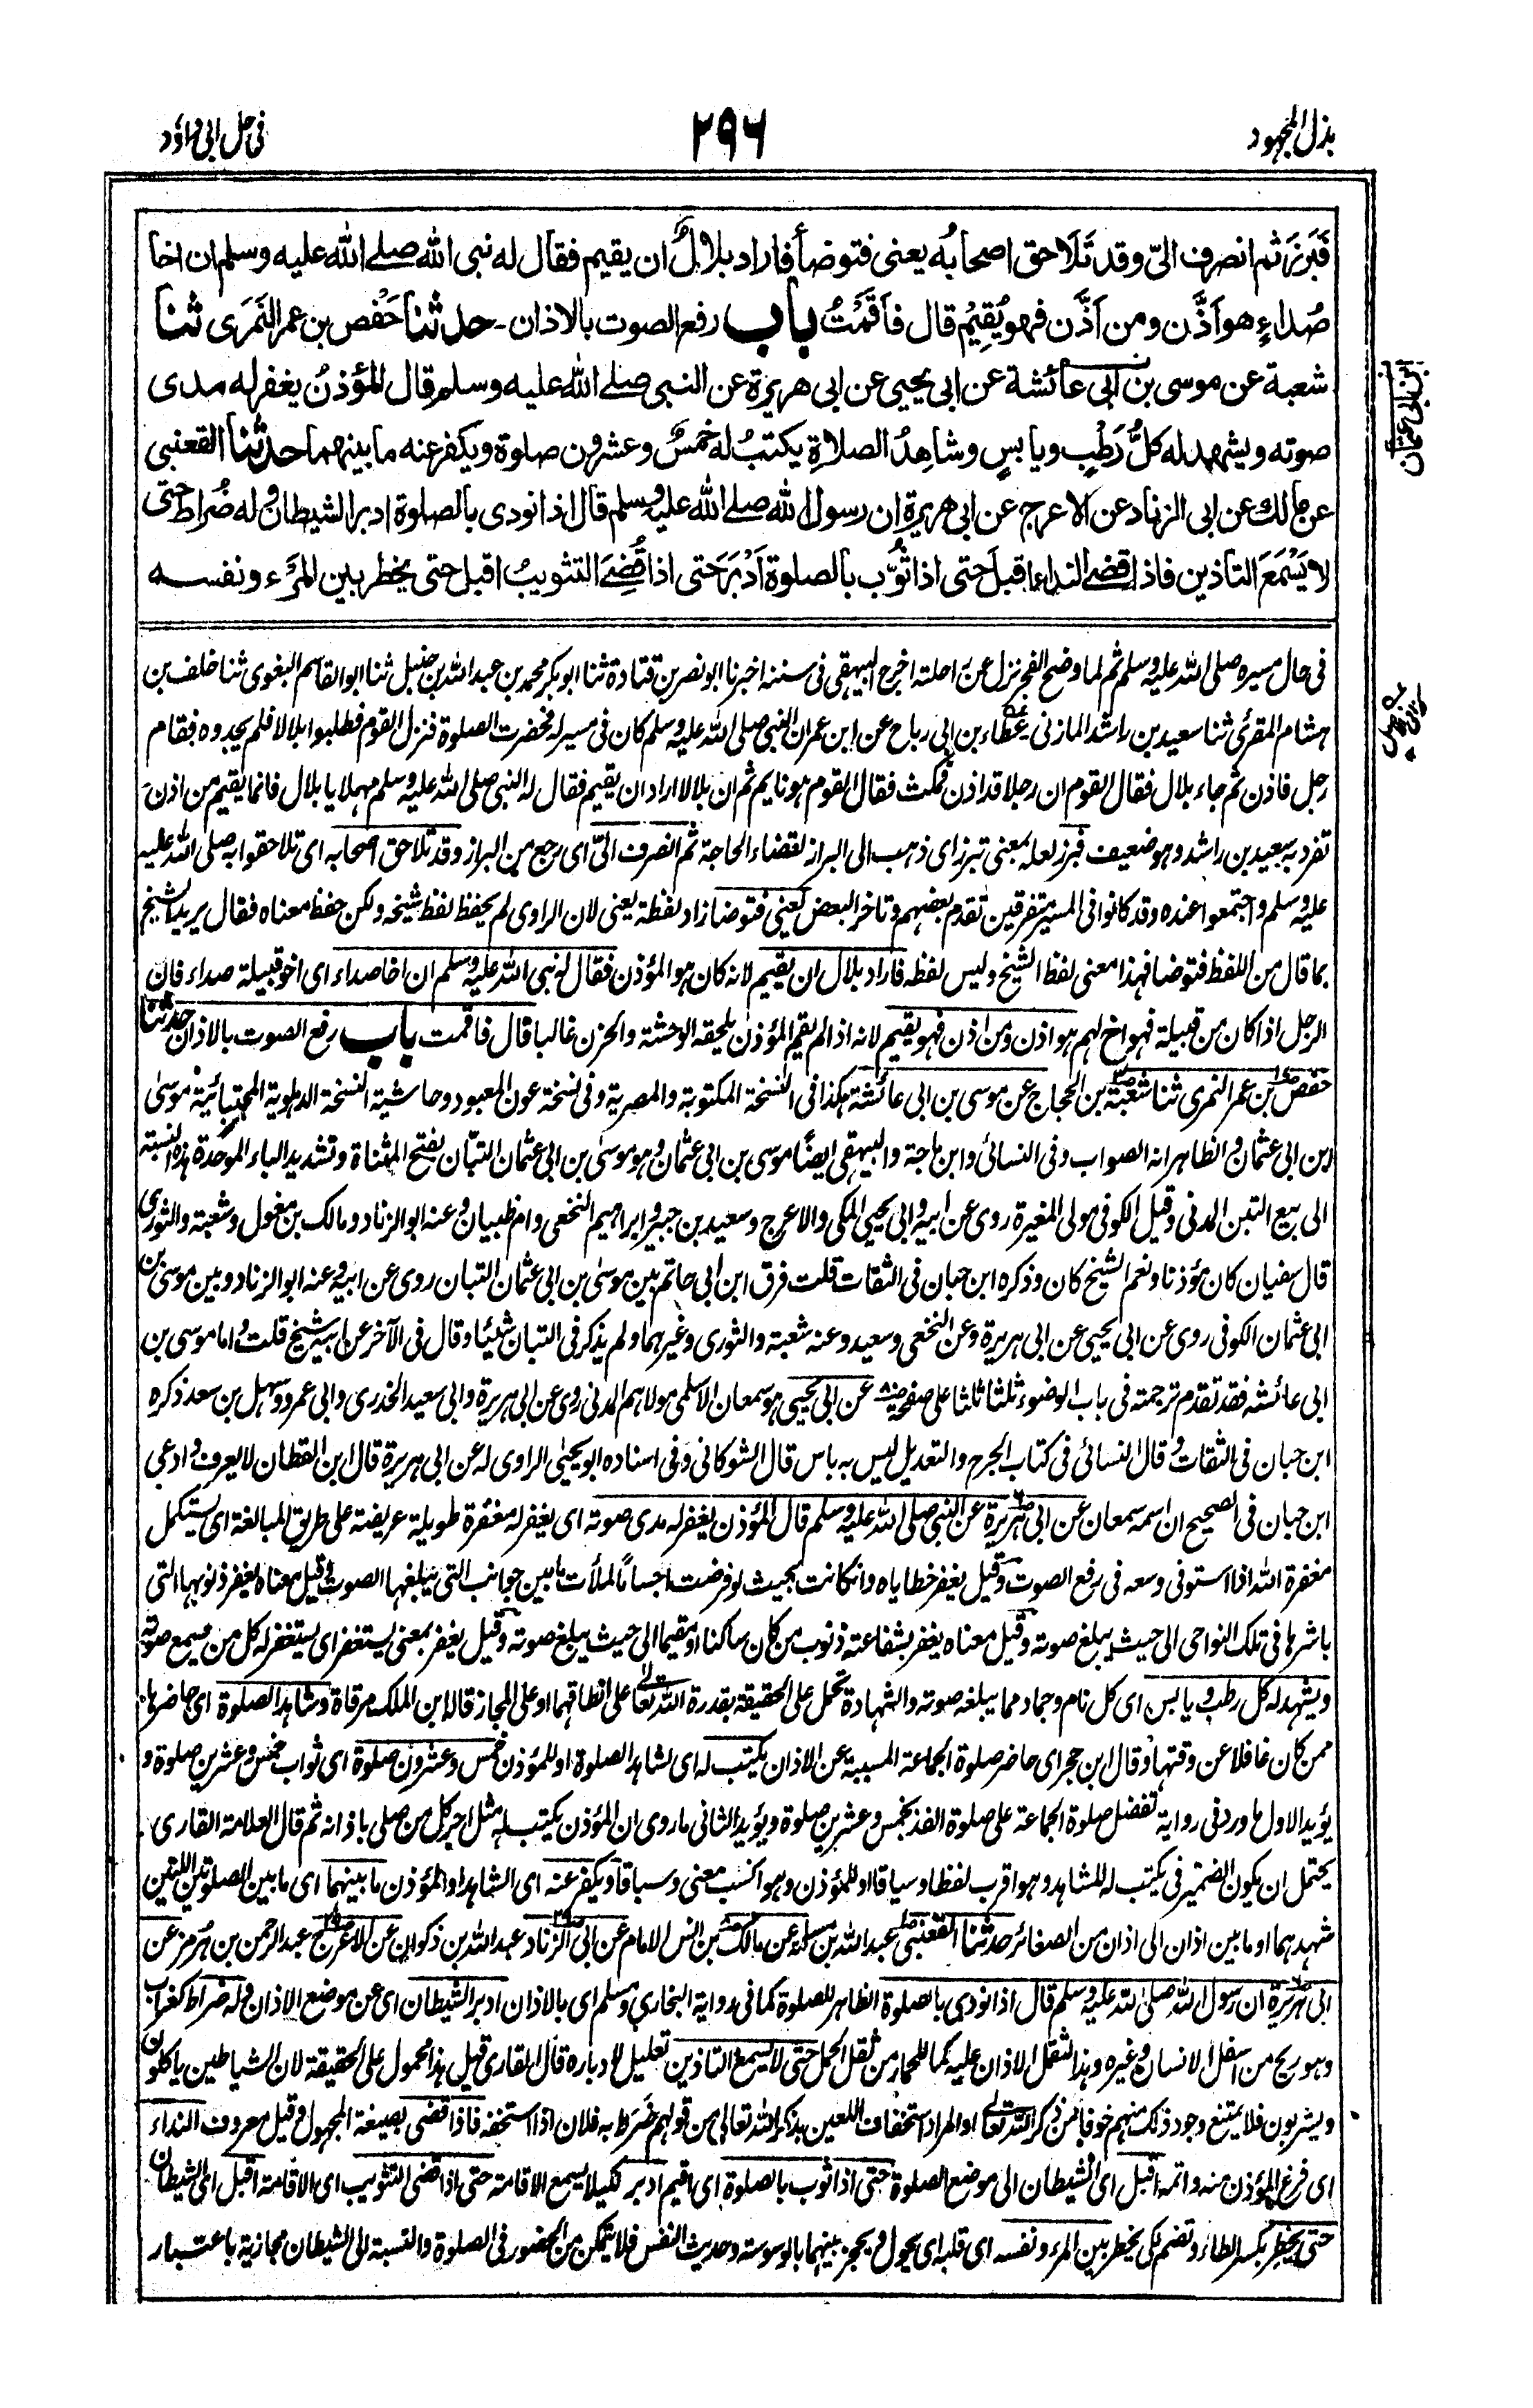 بذل المجهود
٢٩٦
في حل ابي داؤد
فَبَرَزَ ثم انصرف اليّ وقد تَلَاحق اصحابُه يعنى فتوضأ فاراد بلالٌ ان يقيم فقال له نبى الله صلے الله عليه وسلم ان اخا
صُداءٍ هو اَذَّن ومن اَذَّن فهو يُقِيمُ قال فاَقَمْتُ باب رفع الصوت بالاذان - حدثنا حَفْص بن عمر النَمَرى ثنا
شعبة عن موسى بن ابى عائشة عن ابى يحيى عن ابى هريرة عن النبى صلے الله عليه وسلم قال المؤذنُ يغفر له مدى
صوته ويشهد له كلُّ رَطْبٍ ويابسٍ وشاهِدُ الصلاةِ يكتبُ له خمسٌ وعشرون صلوة ويكفر عنه ما بينهما حدثنا القعنبى
عن مالك عن ابى الزناد عن الاعرج عن ابى هريرة ان رسول الله صلے الله عليه وسلم قال اذا نودى بالصلوة ادبر الشيطان وله ضُراط حتى
لا يَسْمَعَ التاذين فاذا قضے النداء اقبل حتى اذا ثُوِّب بالصلوة اَدْبَرَ حتى اذا قُضِےَ التثويبُ اقبل حتى يخطر بين المرَء ونفسه
بن ابى عثمان
فى حال مسيره صلى الله عليه وسلم ثم لما وضح الفجر نزل عن راحلته اخرج البيهقى فى سننه اخبرنا ابو نصر بن قتادة ثنا ابو بكر محمد بن عبد الله بن حنبل ثنا ابو القاسم البغوى ثنا خلف بن
هشام المقرئ ثنا سعيد بن راشد المازنى عطاء بن ابى رباح عن ابن عمر ان النبى صلى الله عليه وسلم كان فى مسير له فحضرت الصلوة فنزل القوم فطلبوا بلالا فلم يجدوه فقام
رجل فاذن ثم جاء بلال فقال القوم ان رجلا قد اذن فمكث فقال القوم هونا يم ثم ان بلالا اراد ان يقيم فقال له النبى صلى الله عليه وسلم مهلا يا بلال فانما يقيم من اذن
تفرد به سعيد بن راشد وهو ضعيف فبرز لعله بمعنى تبرز اى ذهب الى البراز لقضاء الحاجة ثم انصرف الىّ اى رجع من البراز وقد تلاحق اصحابه اى تلاحقوا به صلى الله عليه
عليه وسلم واجتمعوا عنده وقد كانوا فى المسير متفرقين تقدم بعضهم وتاخر البعض يعنى فتوضا زاد لفظة يعنى لان الراوى لم يحفظ لفظ شيخه ولكن حفظ معناه فقال يريد الشيخ
بما قال من اللفظ فتوضا فهذا معنى لفظ الشيخ وليس لفظه فاراد بلال ان يقيم لانه كان هو المؤذن فقال له نبى الله عليه وسلم ان اخا صداء اى اخو قبيلة صداء فان
الرجل اذا كان من قبيلة فهو اخ لهم هو اذن ومن اذن فهو يقيم لانه اذا لم يقم المؤذن يلحقه الوحشة والحزن غالبا قال فاقمت باب رفع الصوت بالاذان حدثنا
حفص بن عمر النمرى ثنا شعبة بن الحجاج عن موسى بن ابى عائشة هكذا فى النسخة المكتوبة والمصرية وفى نسخة عون المعبود وحاشية النسخة الدهلوية المجتبائية موسى
ابن ابى عثمان والظاهر انه الصواب وفى النسائى وابن ماجة والبيهقى ايضًا موسى بن ابى عثمان وهو موسى بن ابى عثمان التبّان بفتح المثناة وتشديد الباء الموحدة هذه النسبة
الى بيع التبن المدنى وقيل الكوفى مولى المغيرة روى عن ابيه وابى يحيى المكى والاعرج وسعيد بن جبير وابراهيم النخعى وام ظبيان وعنه ابو الزناد ومالك بن مغول وشعبة والثورى
قال سفيان كان مؤذنا ونعم الشيخ كان وذكره ابن حبان فى الثقات قلت فرق ابن ابى حاتم بين موسى بن ابى عثمان التبان روى عن ابيه وعنه ابو الزناد وبين موسى بن
ابى عثمان الكوفى روى عن ابى يحيى عن ابى هريرة وعن النخعى وسعيد وعنه شعبة والثورى وغيرهما ولم يذكر فى التبان شيئا وقال فى الآخر عن ابيه شيخ قلت واما موسى بن
ابى عائشه فقد تقدم ترجمته فى باب الوضوء ثلثا ثلثا على صفحة عن ابى يحيى هو سمعان الاسلمى مولاهم المدنى روى عن ابى هريرة وابى سعيد الخدرى وابى عمرو وسهل بن سعد ذكره
ابن حبان فى الثقات وقال النسائى فى كتاب الجرح والتعديل ليس به باس قال الشوكانى وفى اسناده ابو يحيى الراوى له عن ابى هريرة قال ابن القطان لا يعرف وادعى
ابن حبان فى الصحيح ان اسمه سمعان عن ابى هريرة عن النبى صلى الله عليه وسلم قال المؤذن يغفر له مدى صوته اى يغفر له مغفرة طويلة عريضة على طريق المبالغة اى يستكمل
مغفرة الله اذا استوفى وسعه فى رفع الصوت وقيل يغفر خطاياه وان كانت بحيث لو فرضت اجسامًا لملأت ما بين جوانب التى يبلغها الصوت وقيل معناه يغفر ذنوبها التى
باشرها فى تلك النواحى الى حيث يبلغ صوته وقيل معناه يغفر بشفاعته ذنوب من كان ساكنا او مقيما الى حيث يبلغ صوته وقيل يغفر بمعنى يستغفر اى يستغفر له كل من يسمع صوته
ويشهد له كل رطب ويابس اى كل نام وجماد مما يبلغه صوته والشهادة تحمل على الحقيقة بقدرة الله تعالى على انطاقهما او على المجاز قاله ابن الملك مرقاة وشاهد الصلوة اى حاضرها
ممن كان غافلا عن وقتها وقال ابن حجر اى حاضر صلوة الجماعة المسببة عن الاذان يكتب له اى لشاهد الصلوة او للمؤذن خمس وعشرون صلوة اى ثواب خمس وعشرين صلوة و
يؤيد الاول ما ورد فى رواية تفضل صلوة الجماعة على صلوة الفذ بخمس وعشرين صلوة ويؤيد الثانى ما روى ان المؤذن يكتب له مثل اجر كل من صلى باذانه ثم قال العلامة القارى
يحتمل ان يكون الضمير فى يكتب له للشاهد وهو اقرب لفظا وسياقا او للمؤذن وهو انسب معنى وسباقا ويكفر عنه اى الشاهد او المؤذن ما بينهما اى ما بين الصلوتين اللتين
شهدهما او ما بين اذان الى اذان من الصغائر حدثنا القعنبى عبد الله بن مسلمة عن مالك بن انس الامام عن ابى الزناد عبد الله بن ذكوان عن الاعرج عبد الرحمن بن هرمز عن
ابى هريرة ان رسول الله صلى الله عليه وسلم قال اذا نودى بالصلوة الظاهر للصلوة كما فى رواية البخارى ومسلم اى بالاذان ادبر الشيطان اى عن موضع الاذان وله ضراط كغراب
وهو ريح من اسفل الانسان وغيره وهذا لثقل الاذان عليه كما للحمار من ثقل الحمل حتى لا يسمع التاذين تعليل لادباره قال القارى قيل هذا محمول على الحقيقة لان الشياطين ياكلون
ويشربون فلا يمتنع وجود ذلك منهم خوفا من ذكر الله تعالى او المراد استخفاف اللعين بذكر الله تعالى من قولهم ضَرَط به فلان اذا استخفه فاذا قضى بصيغة المجهول وقيل معروف النداء
اى فرغ المؤذن منه واتمه اقبل اى الشيطان الى موضع الصلوة حتى اذا ثوب بالصلوة اى اقيم ادبر لكيلا يسمع الاقامة حتى اذا قضى التثويب اى الاقامة اقبل اى الشيطان
حتى يخطر بكسر الطاء وتضم لكى يخطر بين المرء ونفسه اى قلبه اى يحول ويحجز بينهما بالوسوسة وحديث النفس فلا يتمكن من الحضور فى الصلوة والنسبة الى الشيطان مجازية باعتبار